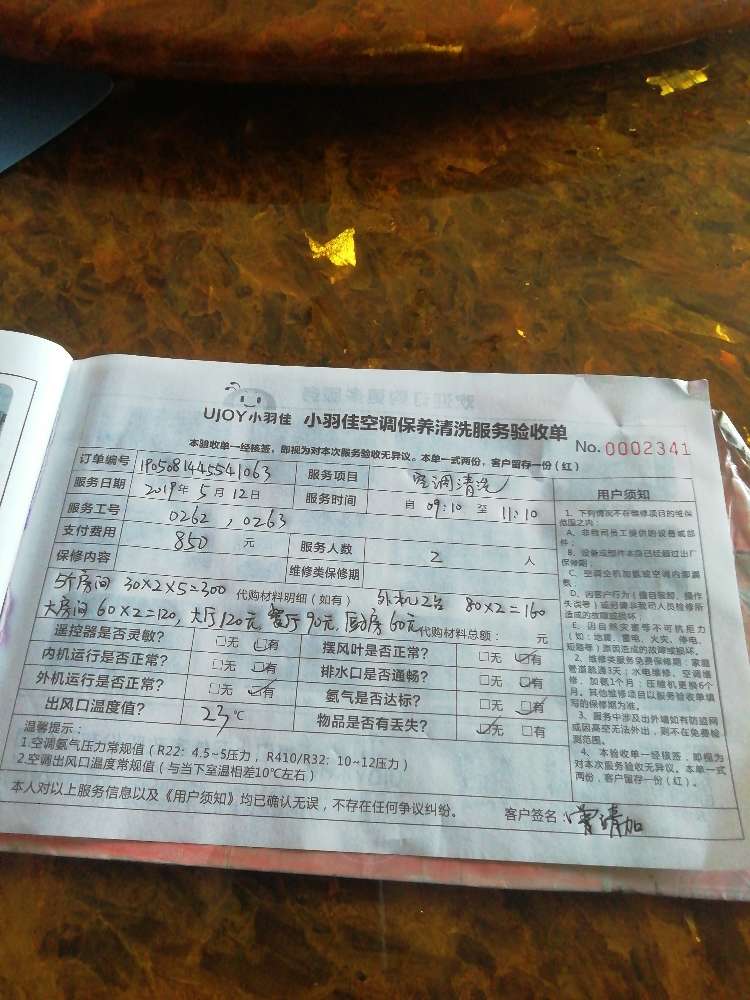 UJOY小羽佳 小羽佳空调保养清洗服务验收单
No. 0002341
本验收单一经核签，即视为对本次服务验收无异议。本单一式两份，客户留存一份（红）
订单编号 1905081445541063 服务项目 空调清洗
服务日期 2019年5月12日 服务时间 自 09:10 至 11:10
服务工号 0262，0263
支付费用 850 元 服务人数 2 人
保修内容 维修类保修期
5个房间 30×2×5=300 代购材料明细（如有） 外机2台 80×2=160
大房间60×2=120，大厅120元 餐厅90元 厨房60元 代购材料总额： 元
遥控器是否灵敏？ □无 □有 摆风叶是否正常？ □无 ☑有
内机运行是否正常？ □无 ☑有 排水口是否通畅？ □无 ☑有
外机运行是否正常？ □无 ☑有 氨气是否达标？ □无 ☑有
出风口温度值？ 23℃ 物品是否有丢失？ ☑无 □有
温馨提示：
1.空调氨气压力常规值（R22：4.5~5压力，R410/R32：10~12压力）
2.空调出风口温度常规值（与当下室温相差10℃左右）
本人对以上服务信息以及《用户须知》均已确认无误，不存在任何争议纠纷。 客户签名：曾清加
用户须知
1、下列情况不在维修项目的维保
范围之内：
A、非我司员工提供的设备或部
件；
B、设备或部件本身已经超过出厂
保修期；
C、空调全机加氨或空调内部漏
氨；
D、因客户行为（擅自装卸、操作
失误等）或另请非我司人员检修所
造成的故障或损坏；
E、因自然灾害等不可抗拒力
（如：地震、雷电、火灾、停电、
短路等）原因造成的故障或损坏。
2、维修类服务免费保修期：家庭
管道疏通3天；水电维修、空调维
修、加氨1个月；压缩机更换6个
月。其他维修项目以服务验收单填
写的保修期为准。
3、服务中涉及出外墙如有防盗网
或因高空无法外出，则不在免费检
测范围。
4、本验收单一经核签，即视为
对本次服务验收无异议。本单一式
两份，客户留存一份（红）。